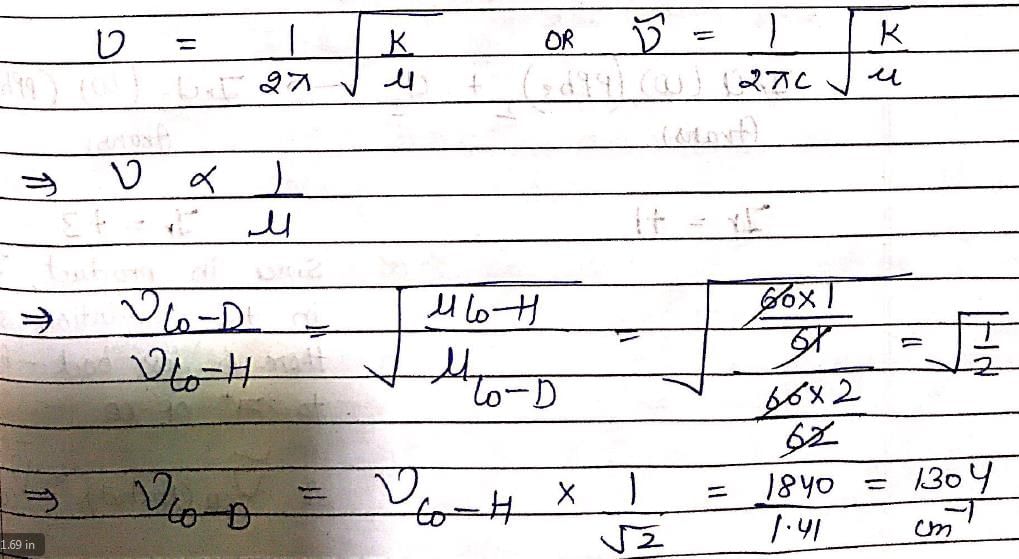 ν = 1/2π √(K/μ) OR ν̄ = 1/2πc √(K/μ)
⇒ ν ∝ 1/μ
⇒ ν Co-D / ν Co-H = √(μ Co-H / μ Co-D) = √((60×1/61) / (60×2/62)) = √(1/2)
⇒ ν Co-D = ν Co-H × 1/√2 = 1840/1.41 = 1304 cm⁻¹
1.69 in